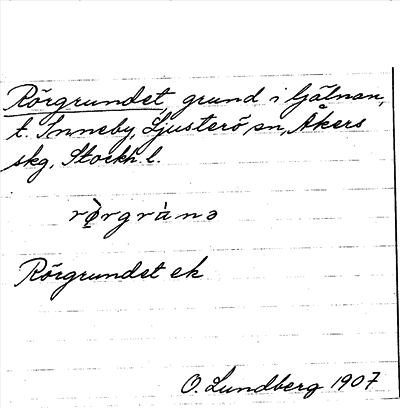 Rörgrundet, grund i Gälnan,
t. Inneby, Ljusterö sn, Åkers
skg, Stockh. l.
rö̀rgrùnə
Rörgrundet ek
O. Lundberg 1907